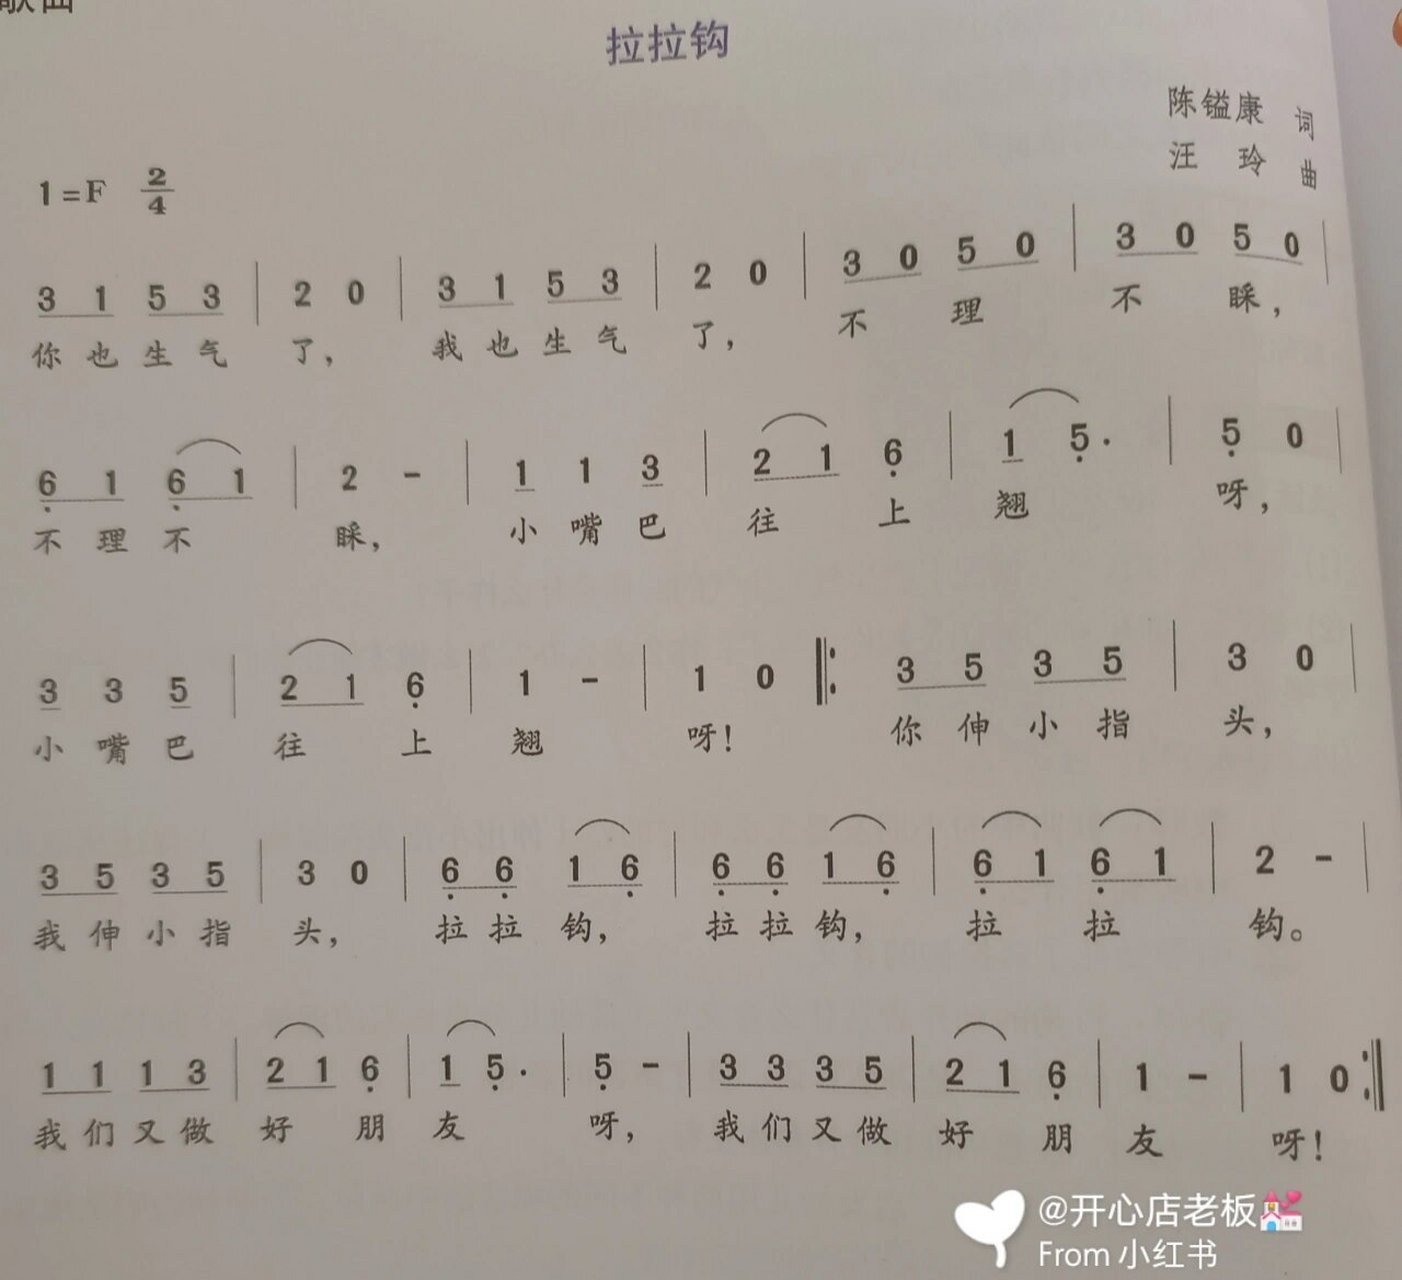 歌曲
拉拉钩
陈镒康 词
汪 玲 曲
1=F 2/4
3 1 5 3 | 2 0 | 3 1 5 3 | 2 0 | 3 0 5 0 | 3 0 5 0 |
你也生气 了, 我也生气 了, 不 理 不 睬,
6 1 6 1 | 2 - | 1 1 3 | 2 1 6 | 1 5. | 5 0 |
不理不 睬, 小嘴巴 往 上 翘 呀,
3 3 5 | 2 1 6 | 1 - | 1 0 ‖: 3 5 3 5 | 3 0 |
小嘴巴 往 上 翘 呀! 你伸小指 头,
3 5 3 5 | 3 0 | 6 6 1 6 | 6 6 1 6 | 6 1 6 1 | 2 - |
我伸小指 头, 拉拉钩, 拉拉钩, 拉 拉 钩。
1 1 1 3 | 2 1 6 | 1 5. | 5 - | 3 3 3 5 | 2 1 6 | 1 - | 1 0 :‖
我们又做 好 朋 友 呀, 我们又做 好 朋 友 呀!
@开心店老板💒
From 小红书